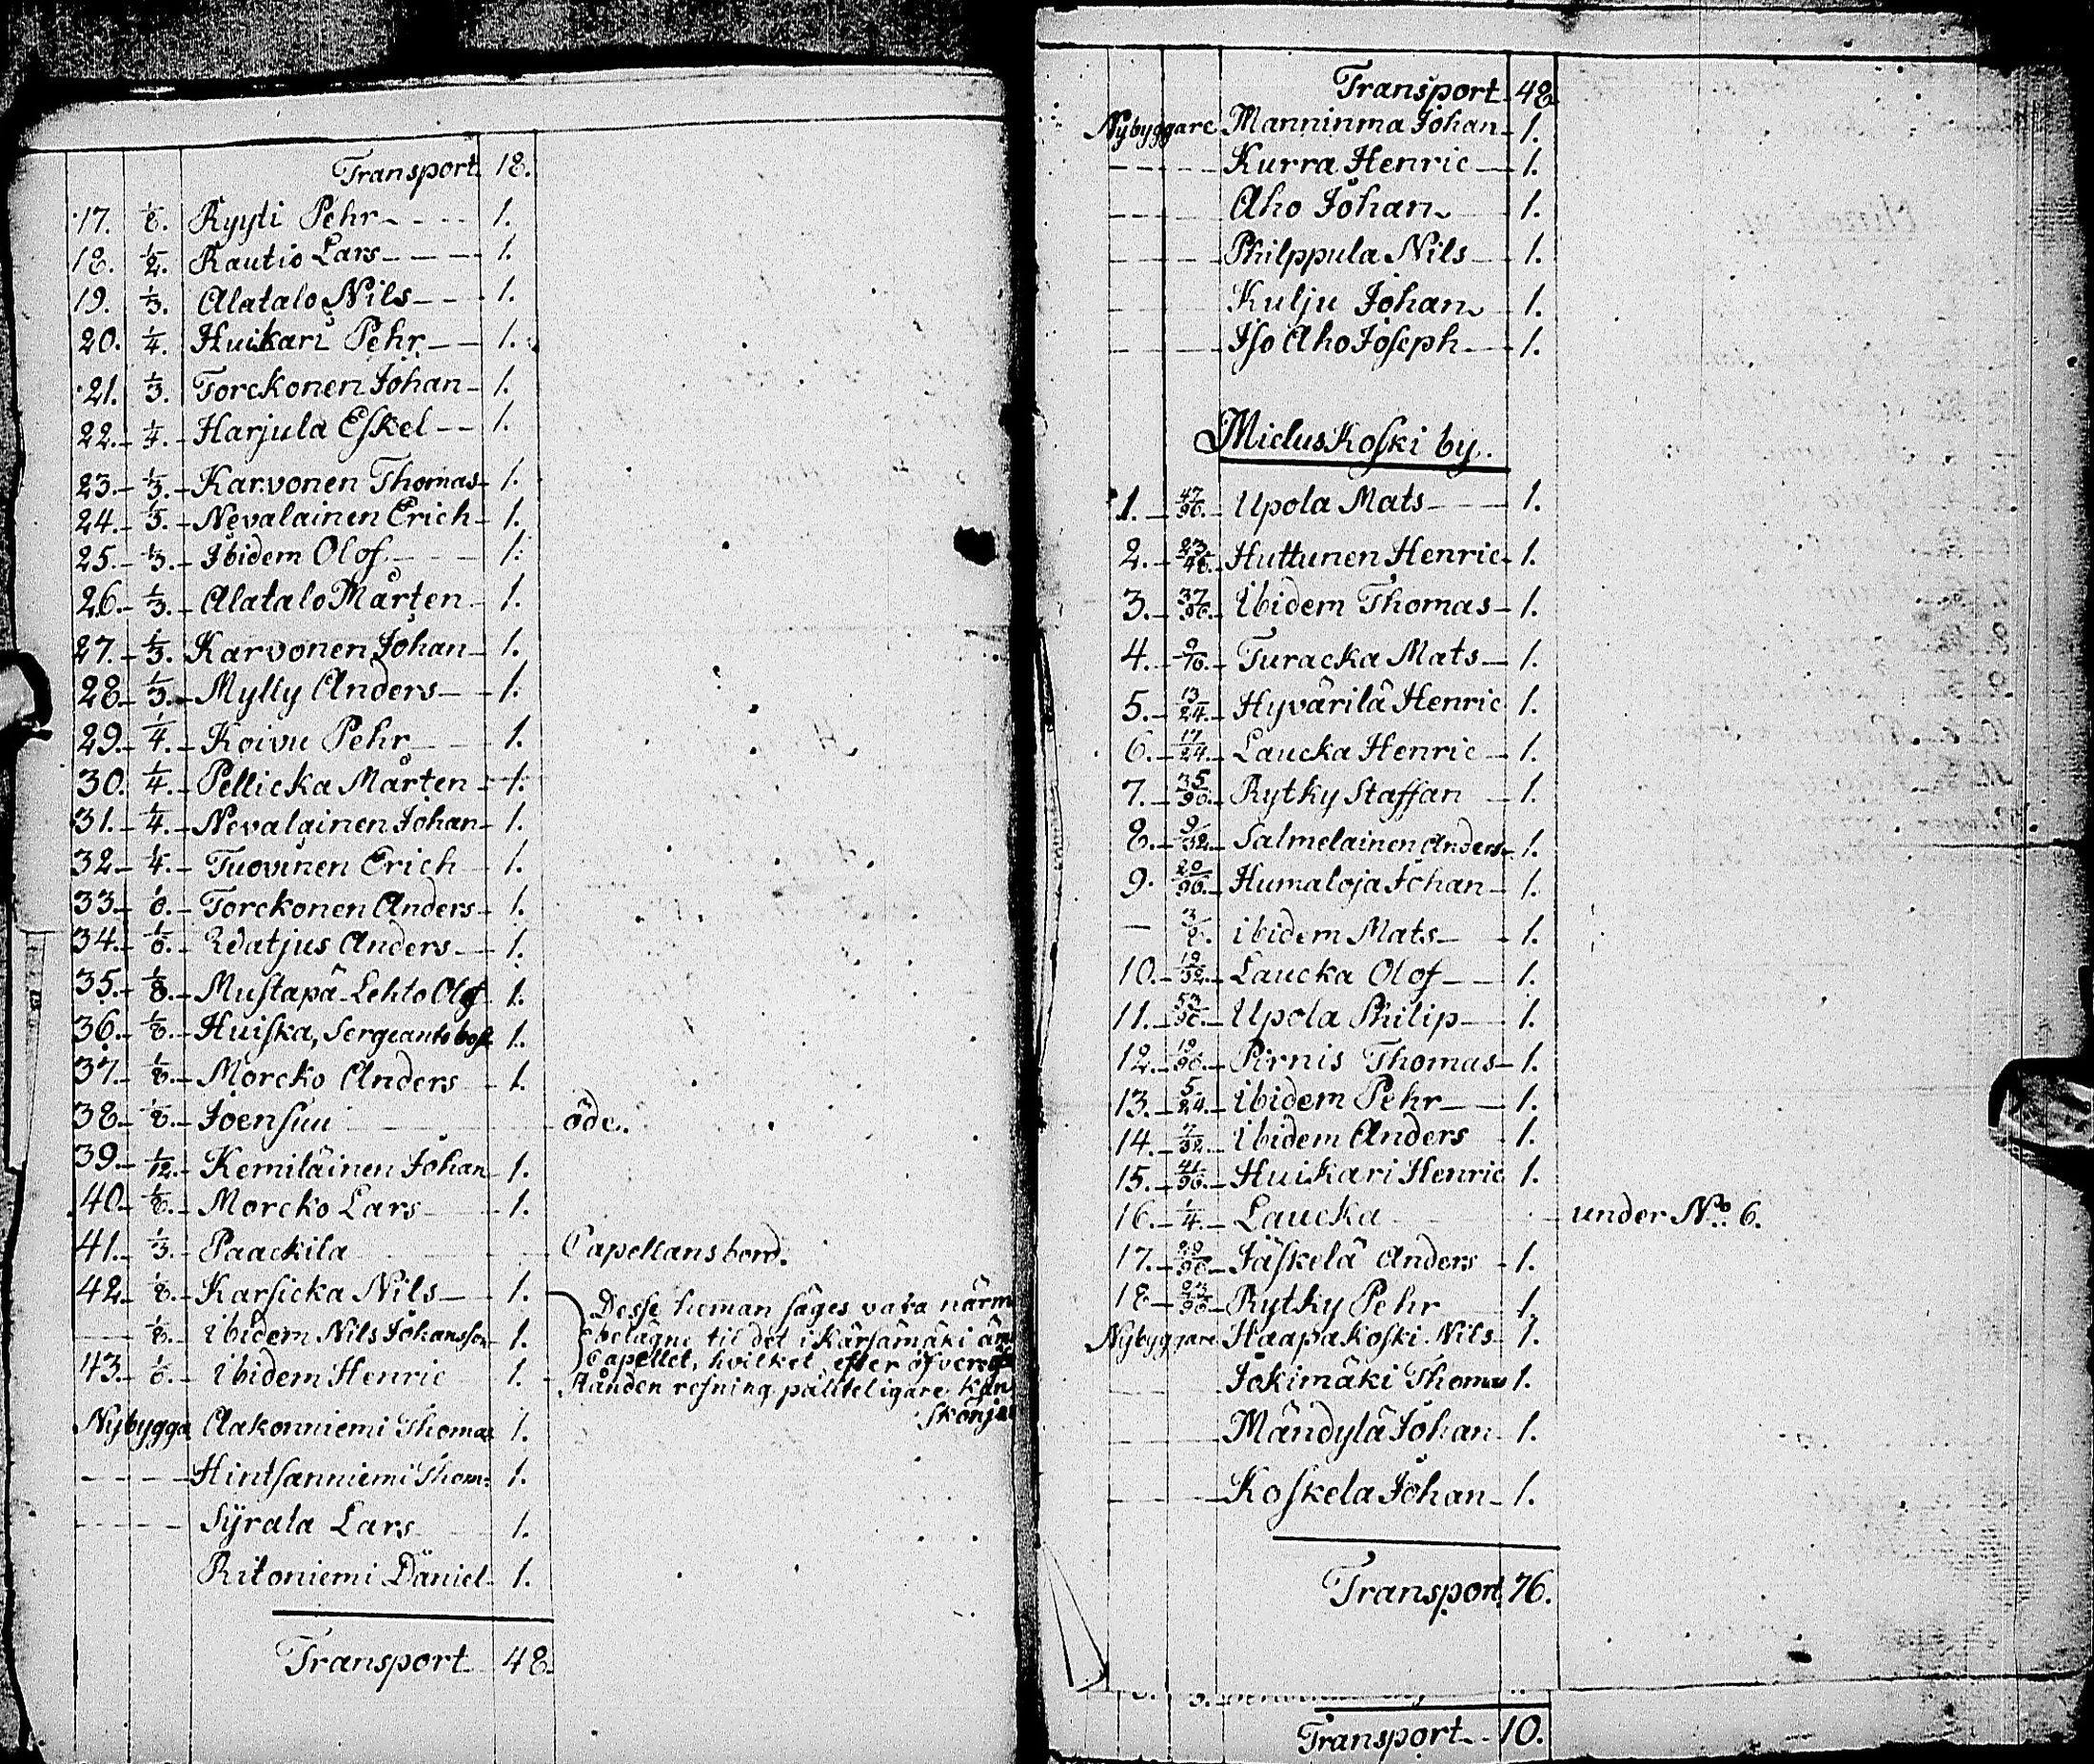 Transport 18.
17. 1/8. Ryyti Pehr 1.
18. 1/2. Rautio Lars 1.
19. 1/3. Alatalo Nils 1.
20. 1/4. Huikari Pehr 1.
21. 1/3. Torckonen Johan 1.
22. 1/4. Harjula Eskel 1.
23. 1/3. Karvonen Thomas 1.
24. 1/3. Nevalainen Erich 1.
25. 1/3. Ibidem Olof 1.
26. 1/3. Alatalo Mårten 1.
27. 1/3. Karvonen Johan 1.
28. 1/3. Mylly Anders 1.
29. 1/4. Koivu Pehr 1.
30. 1/4. Pellicka Mårten 1.
31. 1/4. Nevalainen Johan 1.
32. 1/4. Tuovinen Erich 1.
33. 1/6. Torckonen Anders 1.
34. 1/6. Watjus Anders 1.
35. 1/8. Mustapä-Lehto Olof 1.
36. 1/8. Huiska, Sergeants bost 1.
37. 1/8. Morcko Anders 1.
38. 1/8. Joensuu öde.
39. 1/12. Kemiläinen Johan 1.
40. 1/8. Morcko Lars 1.
41. 1/3. Paackila Capellansbord.
42. 1/8. Karsicka Nils 1.
1/8. Ibidem Nils Johansson 1.
43. 1/6. Ibidem Henric 1.
Desse heman säges vara närm
belägne til det i Kärsämäki
Capellet, hvilket efter
stånden resning påliteligare kan
skönjas
Nybygga Aakonniemi Thomas 1.
Hintsanniemi Thom: 1.
Syrala Lars 1.
Ritoniemi Daniel 1.
Transport 48.
Transport 48
Nybyggare Manninma Johan 1.
Kurra Henric 1.
Aho Johan 1.
Philppula Nils 1.
Kulju Johan 1.
Iso Aho Joseph 1.
Mieluskoski by.
1. 47/96. Upola Mats 1.
2. 23/48. Huttunen Henric 1.
3. 37/96. Ibidem Thomas 1.
4. 9/16. Turacka Mats 1.
5. 13/24. Hyvärilä Henric 1.
6. 17/24. Laucka Henric 1.
7. 35/96. Rytky Staffan 1.
8. 9/32. Salmelainen Anders 1.
9. 20/96. Humaloja Johan 1.
3/8. ibidem Mats 1.
10. 19/32. Laucka Olof 1.
11. 53/96. Upola Philip 1.
12. 19/96. Pirnis Thomas 1.
13. 5/24. Ibidem Pehr 1.
14. 7/32. Ibidem Anders 1.
15. 41/96. Huikari Henric 1.
16. 1/4. Laucka under No. 6.
17. Jäskelä Anders 1.
18 23/96. Rytky Pehr 1.
Nybyggare Haapakoski Nils 1.
Jokimäki Thomas 1.
Mändylä Johan 1.
Koskela Johan 1.
Transport 76.
Transport 10.